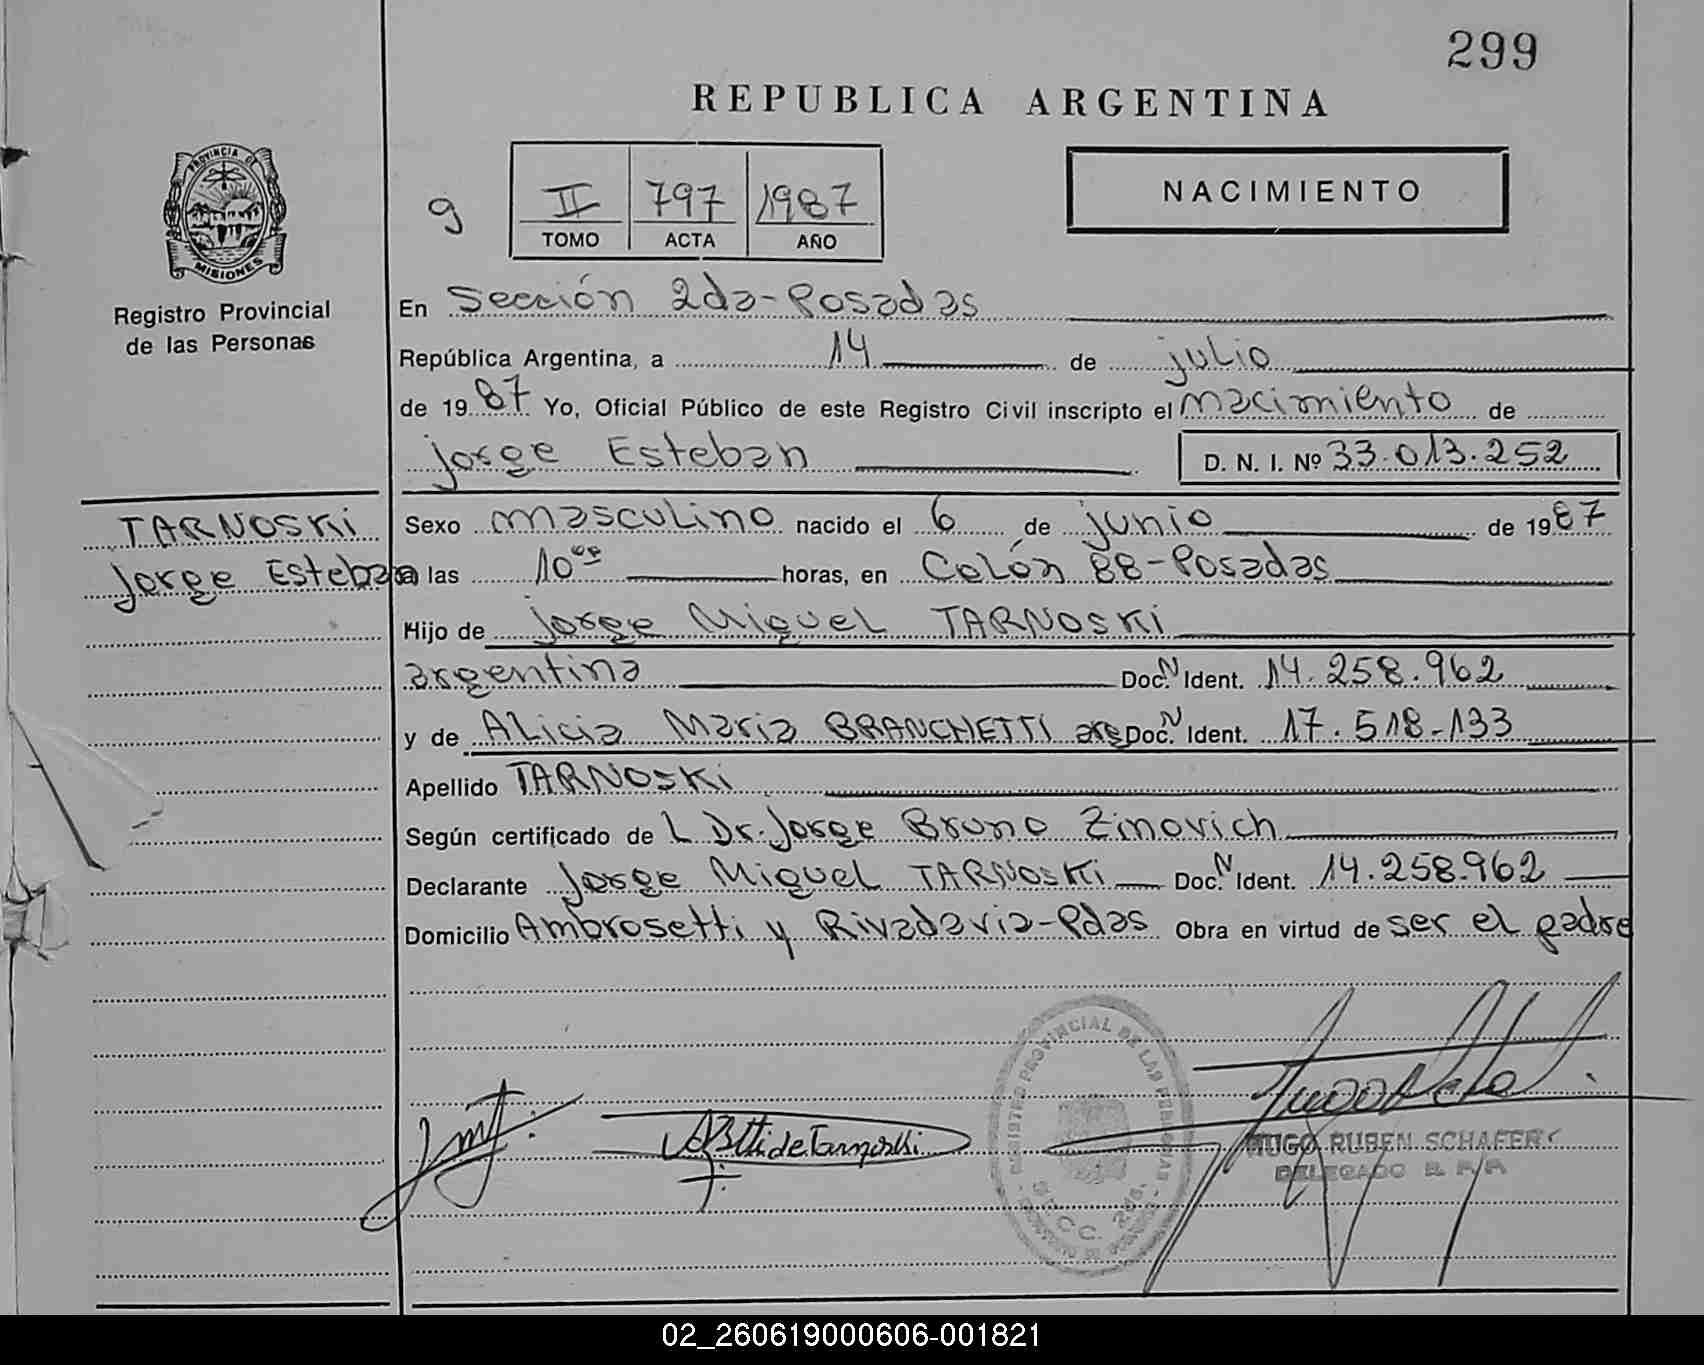 299
REPUBLICA ARGENTINA
PROVINCIA DE
MISIONES
Registro Provincial
de las Personas
9
II 797 1987
TOMO ACTA AÑO
NACIMIENTO
En Sección 2da-Posadas
República Argentina, a 14 de julio
de 1987 Yo, Oficial Público de este Registro Civil inscripto el nacimiento de
Jorge Esteban D. N. I. Nº 33.013.252
TARNOSKi
Jorge Esteban
Sexo masculino nacido el 6 de junio de 1987
a las 10ºº horas, en Colón 88-Posadas
Hijo de Jorge Miguel TARNOSKi
argentina Doc. N Ident. 14.258.962
y de Alicia Maria BRANCHETTI arg Doc. N Ident. 17.518-133
Apellido TARNOSKi
Según certificado de L Dr. Jorge Bruno Zinovich
Declarante Jorge Miguel TARNOSKi Doc. N Ident. 14.258.962
Domicilio Ambrosetti y Rivadavia-Pdas Obra en virtud de ser el padre
REGISTRO PROVINCIAL DE LAS PERSONAS
SECC. 2da.
de Tarnoski
HUGO RUBEN SCHAFER
DELEGADO R. P. P.
02_260619000606-001821